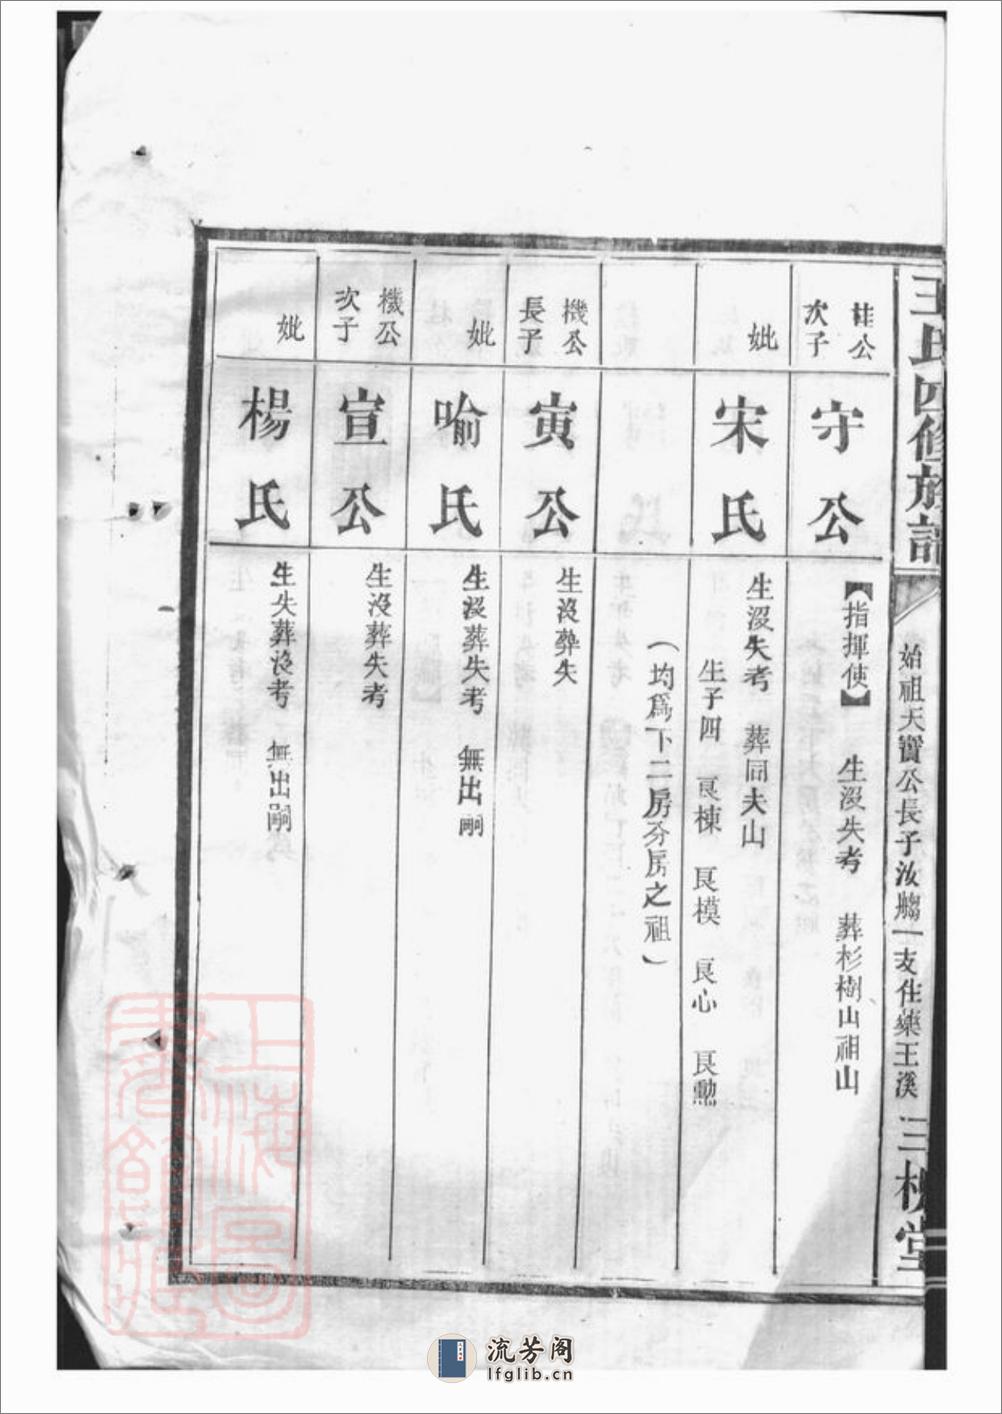 王氏四修族譜
始祖天寶公長子汝
一支住藥王溪
三槐堂
桂公
次子
守公
【指揮使】 生沒失考 葬杉樹山祖山
妣
宋氏
生沒失考 葬同夫山
生子四 良棟 良模 良心 良勲
(均爲下二房分房之祖)
機公
長子
寅公
生沒葬失
妣
喻氏
生沒葬失考 無出嗣
機公
次子
宣公
生沒葬失考
妣
楊氏
生失葬沒考 無出嗣
上海圖書館藏
流芳阁
lfglib.cn